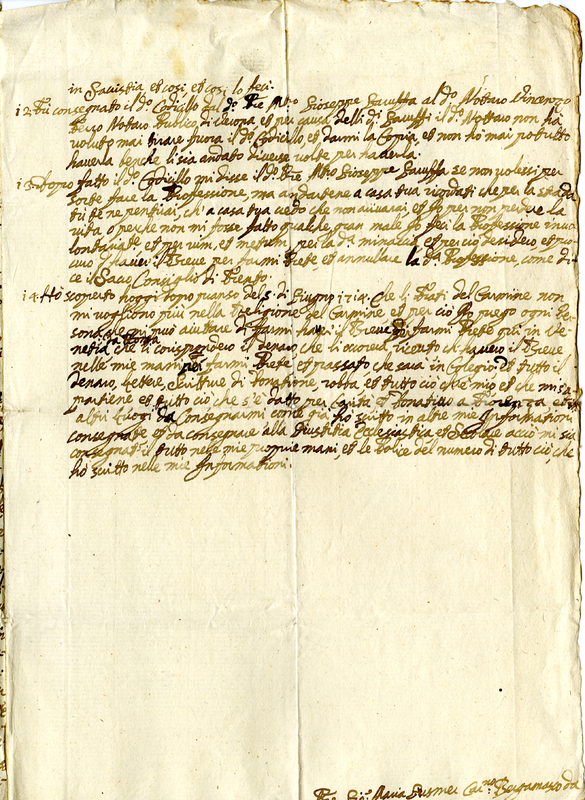 in Sacristia et così et così lo feci.
12. Fù consegnato il d.º Codicillo dal d.º Pre Mro Gioseppe al d.º Nottaro Vincenzo
Nottaro Publico di Verona et per causa delli di il d.º Nottaro non hà
voluto mai tirare fuora il d.º Codicillo, et darmi la Copia, et non hò mai potutto
haverla benche li sia andato diverse volte per haverla.
13. Dopo fatto il d.º Codicillo mi disse il d.º Pre Mro Gioseppe se non volessi per
sorte fare la Professione, ma andartene a casa tua che per la strada
tù te ne pentirai, ch'a casa tua credo che non arrivarai, et Io per non perdere la
vita o perche non mi fosse fatto qualche gran male Io feci la Professione
et per vim, et metum per la d.ª minaccia et perciò desidero et
haver il Breve per farmi Prete, et annullare la d.ª Professione, come di-
ce il Sacro Consiglio di Trento.
14. Hò scoperto hoggi dopo pranso del 5. di Giugno 1714. Che li Frati del Carmine non
mi vogliono più nella Religione del Carmine et perciò Io prego ogni Per-
sona che mi può aiutare di farmi haver il Breve di farmi Prete qui in Ve-
netia che li corrisponderò il denaro, che li occorerà, tanto ch'haverò il Breve
nelle mie mani per farmi Prete, et passato che sarà in Colegio et tutto il
denaro, lettere, scritture di donatione, robba et tutto ciò ch'è mio et che mi s'a-
partiene et tutto ciò che s'è datto per Carità et donativo a et
altri Luogi da Consegnarmi come già hò scritto in altre mie Informationi
consegnate et da consegnare alla Giustitia Eclesiastica et Secolare acciò mi sia
consegnati il tutto nelle mie proprie mani, et le Police del numero di tutto ciò, che
hò scritto nelle mie Informationi.
Maria Bergamasco da